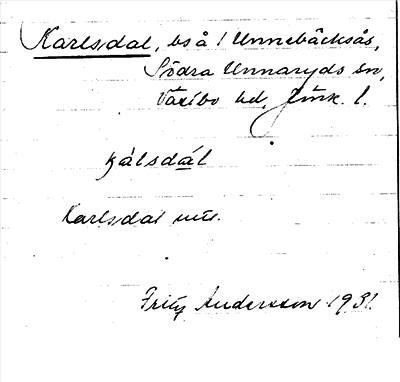 Karlsdal, bs å 1 Unnebäcksås,
Södra Unnaryds sn,
Västbo hd, Jönk. l.
kálsdál
Karlsdal
Fritz Andersson 1931.